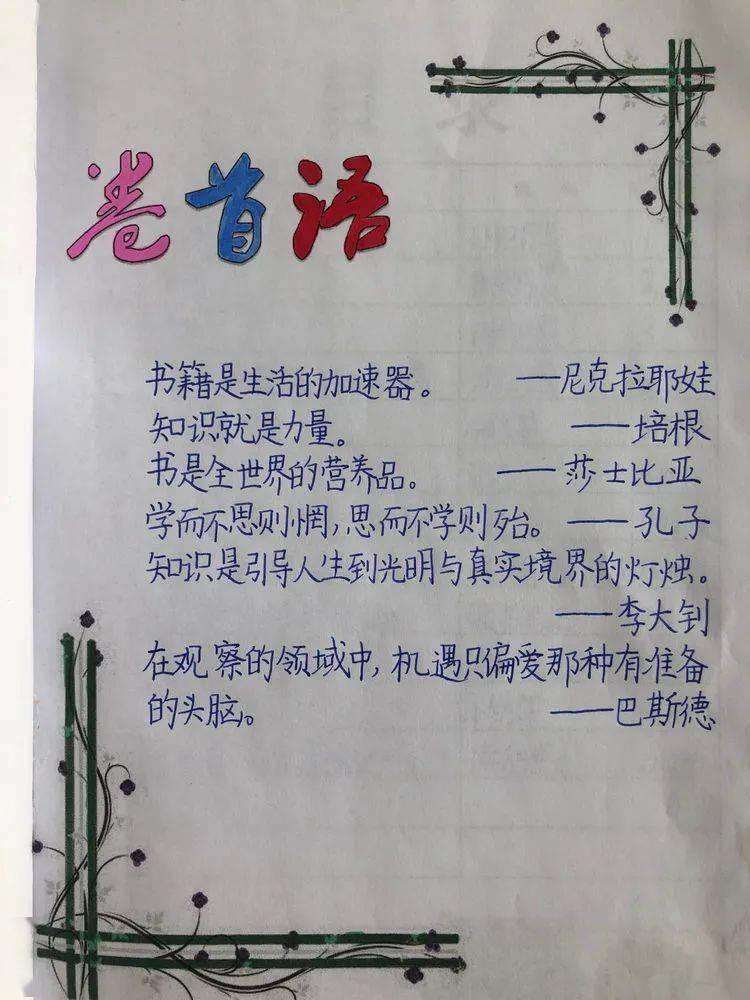 卷首语
书籍是生活的加速器。 ——尼克拉耶娃
知识就是力量。 ——培根
书是全世界的营养品。 ——莎士比亚
学而不思则惘,思而不学则殆。 ——孔子
知识是引导人生到光明与真实境界的灯烛。
——李大钊
在观察的领域中,机遇只偏爱那种有准备
的头脑。 ——巴斯德